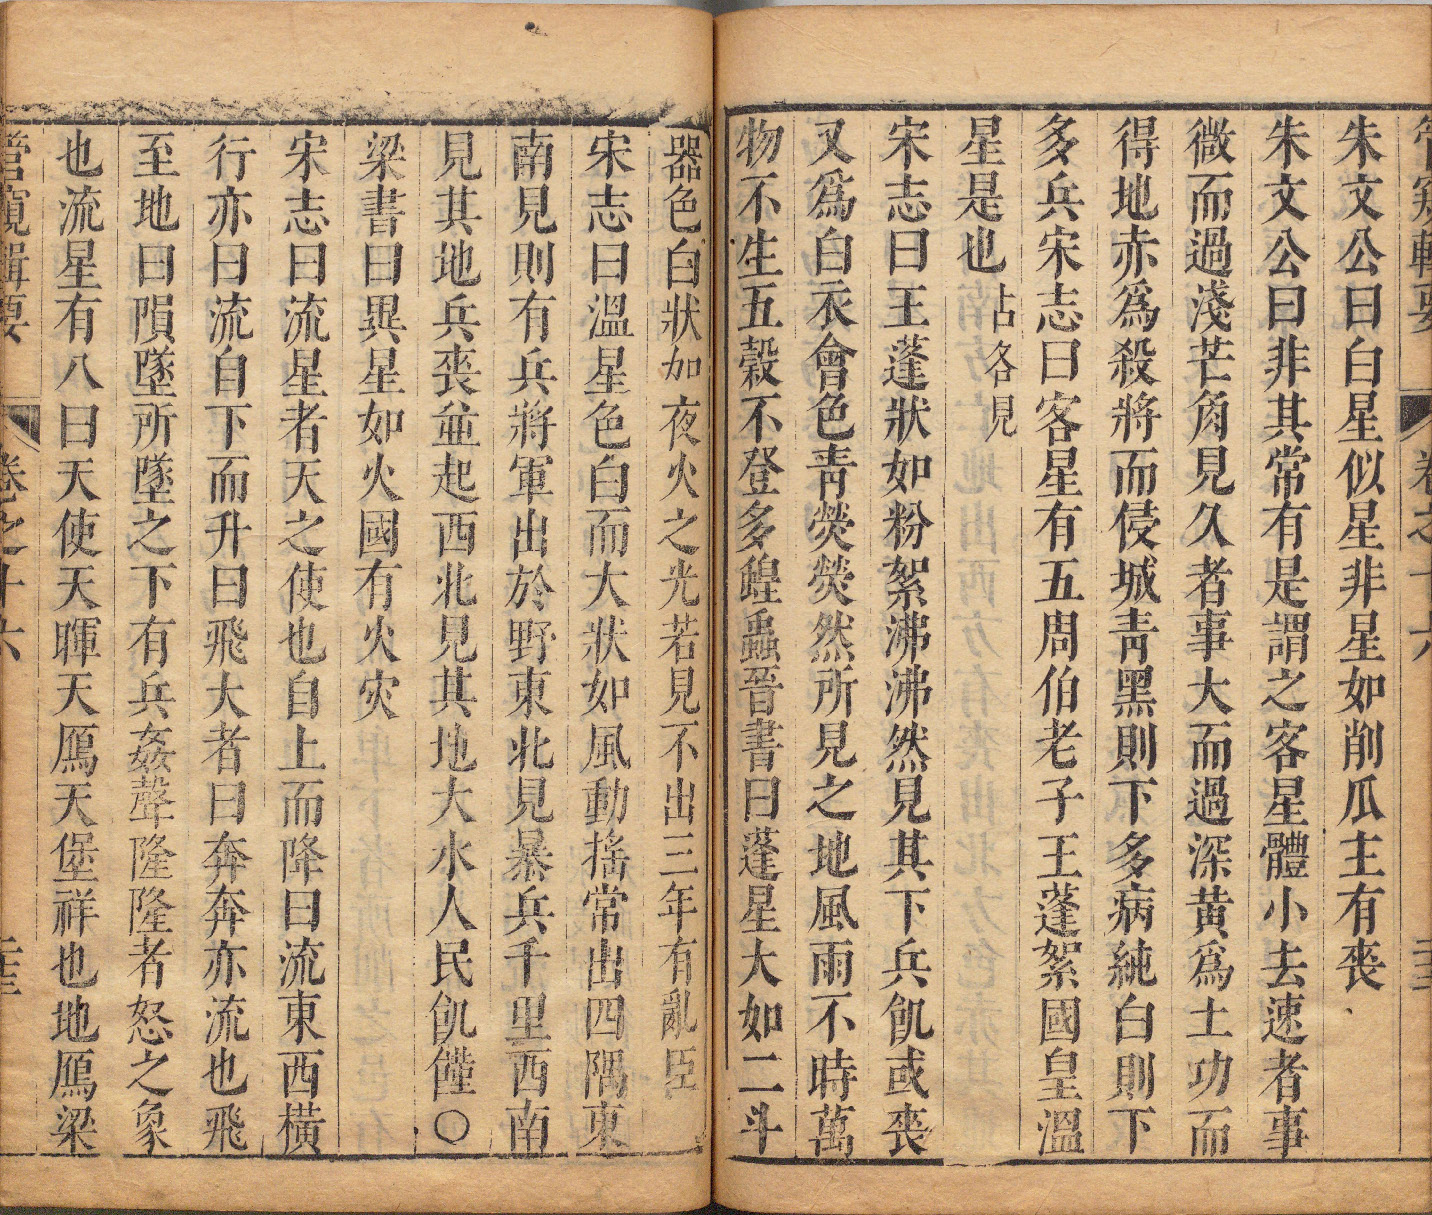 管窺輯要 卷之十六 二十二
朱文公曰白星似星非星如削瓜主有喪
朱文公曰非其常有是謂之客星體小去速者事
微而過淺芒角見久者事大而過深黃爲土功而
得地赤爲殺將而侵城青黑則下多病純白則下
多兵宋志曰客星有五周伯老子王蓬絮國皇溫
星是也占各見
宋志曰王蓬狀如粉絮沸沸然見其下兵飢或喪
又爲白衣會色靑熒熒然所見之地風雨不時萬
物不生五穀不登多蝗蟲晉書曰蓬星大如二斗
器色白狀如夜火之光若見不出三年有亂臣
宋志曰溫星色白而大狀如風動搖常出四隅東
南見則有兵將軍出於野東北見暴兵千里西南
見其地兵喪並起西北見其地大水人民飢饉○
梁書曰異星如火國有火灾
宋志曰流星者天之使也自上而降曰流東西橫
行亦曰流自下而升曰飛大者曰奔奔亦流也飛
至地曰隕墜所墜之下有兵姦聲隆隆者怒之象
也流星有八曰天使天暉天鴈天堡祥也地鴈梁
管窺輯要 卷之十六